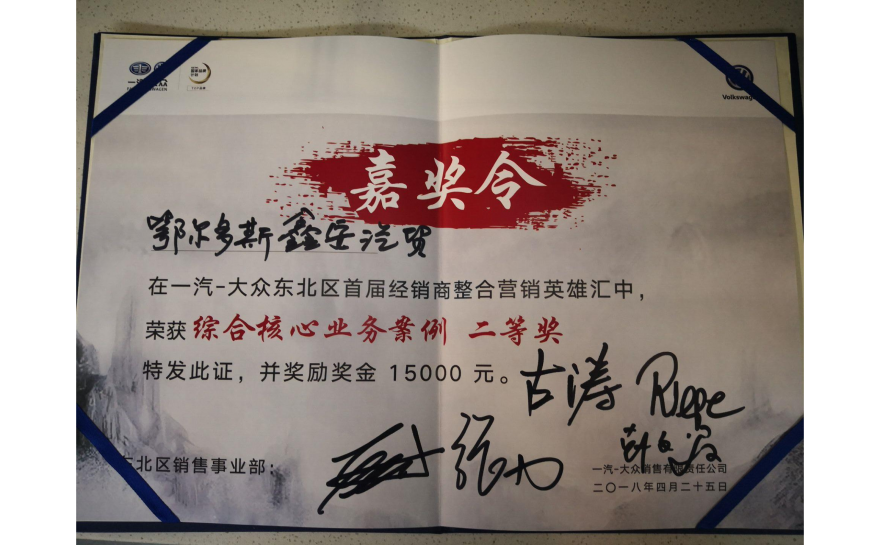 一汽-大众
Volkswagen
嘉奖令
鄂尔多斯鑫安汽贸
在一汽-大众东北区首届经销商整合营销英雄汇中，
荣获 综合核心业务案例 二等奖
特发此证，并奖励奖金 15000 元。
古涛
东北区销售事业部：
张力
一汽-大众销售有限责任公司
二〇一八年四月二十五日